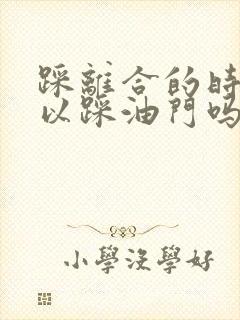 踩離合的時
以踩油門嗎
小學沒學好